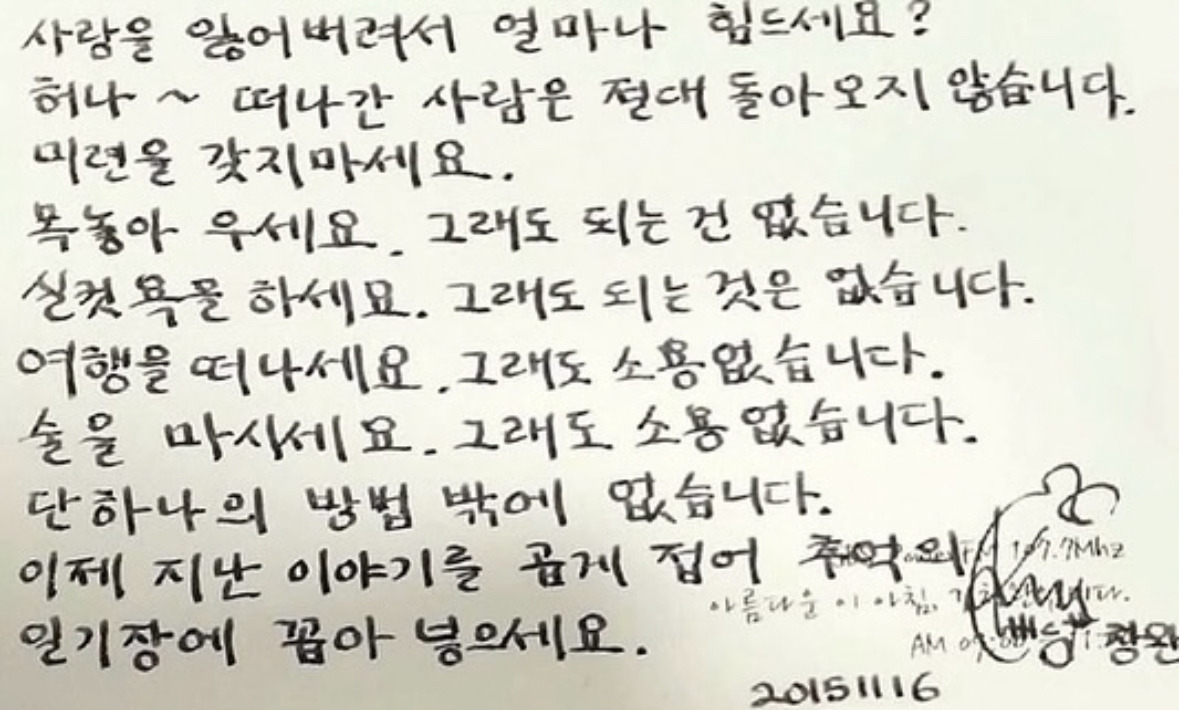 사랑을 잃어버려서 얼마나 힘드세요?
허나 ~ 떠나간 사람은 절대 돌아오지 않습니다.
미련을 갖지마세요.
목놓아 우세요. 그래도 되는 건 없습니다.
실컷 욕을 하세요. 그래도 되는 것은 없습니다.
여행을 떠나세요. 그래도 소용없습니다.
술을 마시세요. 그래도 소용없습니다.
단하나의 방법 밖에 없습니다.
이제 지난 이야기를 곱게 접어 추억의
107.7Mhz
아름다운 이 아침,
일기장에 꼽아 넣으세요.
AM
배우 정완
20151116